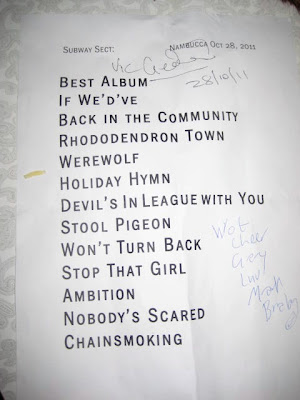 SUBWAY SECT: NAMBUCCA OCT 28, 2011
Vic Godard
28/10/11
BEST ALBUM
IF WE'D'VE
BACK IN THE COMMUNITY
RHODODENDRON TOWN
WEREWOLF
HOLIDAY HYMN
DEVIL'S IN LEAGUE WITH YOU
STOOL PIGEON
WON'T TURN BACK
STOP THAT GIRL
AMBITION
NOBODY'S SCARED
CHAINSMOKING
Wot
Cheer
Gary
Luv